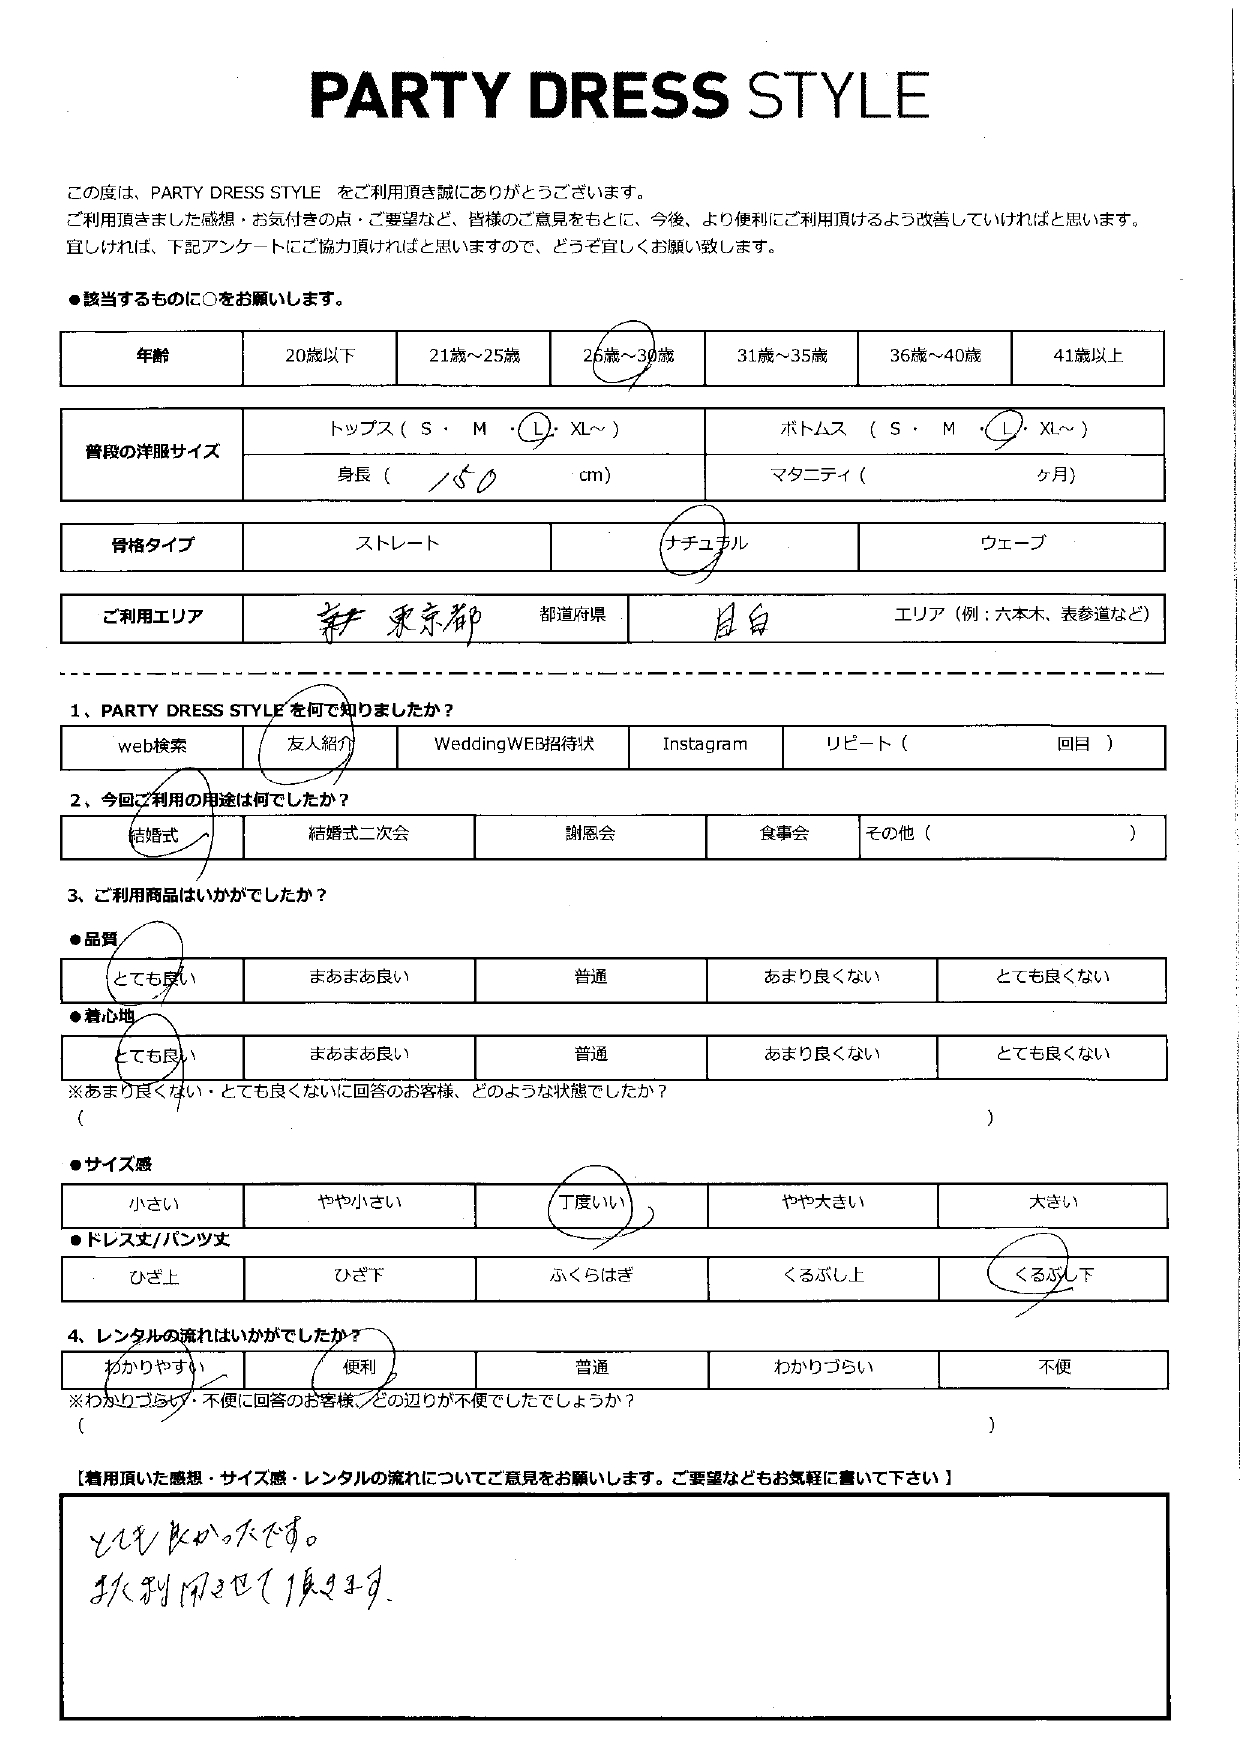 PARTY DRESS STYLE
この度は、PARTY DRESS STYLE をご利用頂き誠にありがとうございます。
ご利用頂きました感想・お気付きの点・ご要望など、皆様のご意見をもとに、今後、より便利にご利用頂けるよう改善していければと思います。
宜しければ、下記アンケートにご協力頂ければと思いますので、どうぞ宜しくお願い致します。
●該当するものに○をお願いします。
年齢 20歳以下 21歳～25歳 26歳～30歳 31歳～35歳 36歳～40歳 41歳以上
普段の洋服サイズ
トップス ( S ・ M ・ L ・ XL～ ) ボトムス ( S ・ M ・ L ・ XL～ )
身長 ( 150 cm) マタニティ ( ヶ月)
骨格タイプ ストレート ナチュラル ウェーブ
ご利用エリア 東京都 都道府県 目白 エリア（例：六本木、表参道など）
1、PARTY DRESS STYLE を何で知りましたか？
web検索 友人紹介 WeddingWEB招待状 Instagram リピート ( 回目 )
2、今回ご利用の用途は何でしたか？
結婚式 結婚式二次会 謝恩会 食事会 その他 ( )
3、ご利用商品はいかがでしたか？
●品質
とても良い まあまあ良い 普通 あまり良くない とても良くない
●着心地
とても良い まあまあ良い 普通 あまり良くない とても良くない
※あまり良くない・とても良くないに回答のお客様、どのような状態でしたか？
( )
●サイズ感
小さい やや小さい 丁度いい やや大きい 大きい
●ドレス丈/パンツ丈
ひざ上 ひざ下 ふくらはぎ くるぶし上 くるぶし下
4、レンタルの流れはいかがでしたか？
わかりやすい 便利 普通 わかりづらい 不便
※わかりづらい・不便に回答のお客様、どの辺りが不便でしたでしょうか？
( )
【着用頂いた感想・サイズ感・レンタルの流れについてご意見をお願いします。ご要望などもお気軽に書いて下さい】
とても良かったです。
また利用させて頂きます.